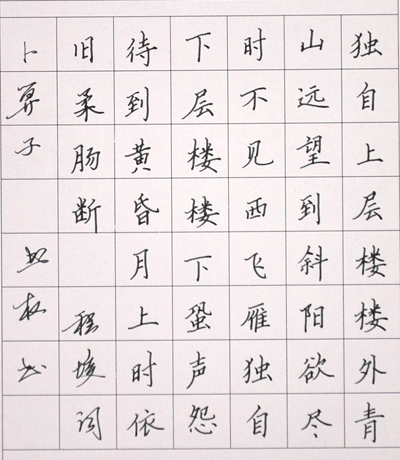 独自上层楼楼外青
山远望到斜阳欲尽
时不见西飞雁独自
下层楼楼下蛩声怨
待到黄昏月上时依
旧柔肠断 程垓词
卜算子 书